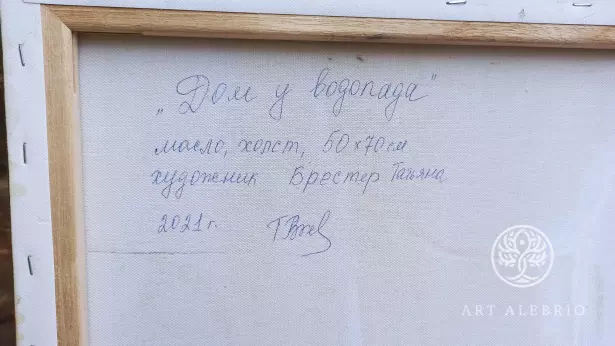 „Дом у водопада"
масло, холст, 50х70см
художник Брестер Татьяна
2021г.
ART ALEBRIO